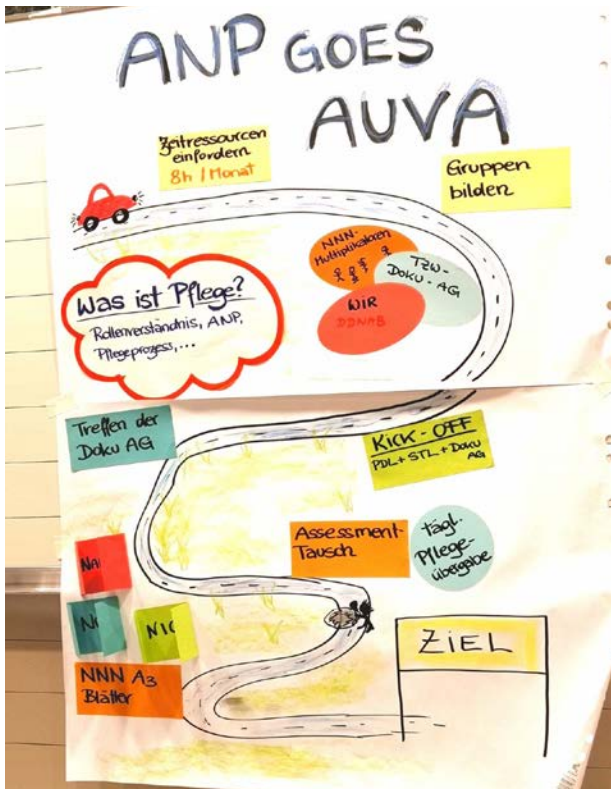 ANP GOES
AUVA
Zeitressourcen
einfordern
8h / Monat
Gruppen
bilden
NNN-
Multiplikatoren
TZW-
DOKU-AG
WIR
DDNAB
Was ist Pflege?
Rollenverständnis, ANP,
Pflegeprozess,...
Treffen der
Doku AG
KICK-OFF
PDL + STL + DOKU
AG
Assessment-
Tausch
tägl.
Pflege-
übergabe
NA
NIC
NNN A3
Blätter
ZIEL